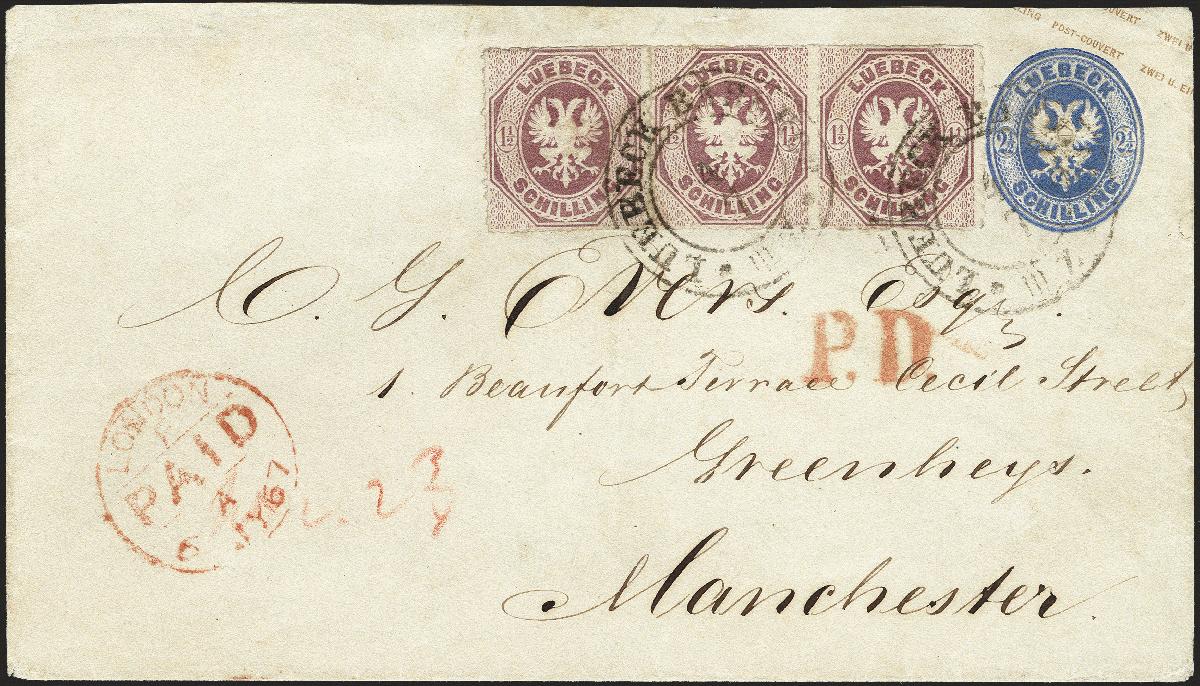 LING POST-COUVERT
ZWEI U. EI
LUEBECK
1½ 1½
SCHILLING
LUEBECK
1½ 1½
SCHILLING
LUEBECK
1½ 1½
SCHILLING
LUEBECK
2½ 2½
SCHILLING
LUEBECK
LUEBECK
Esqr
P.D.
1. Beaufort Terrace Cecil Street
Greenheys.
Manchester.
LONDON
PAID
A
6 JY 67
23